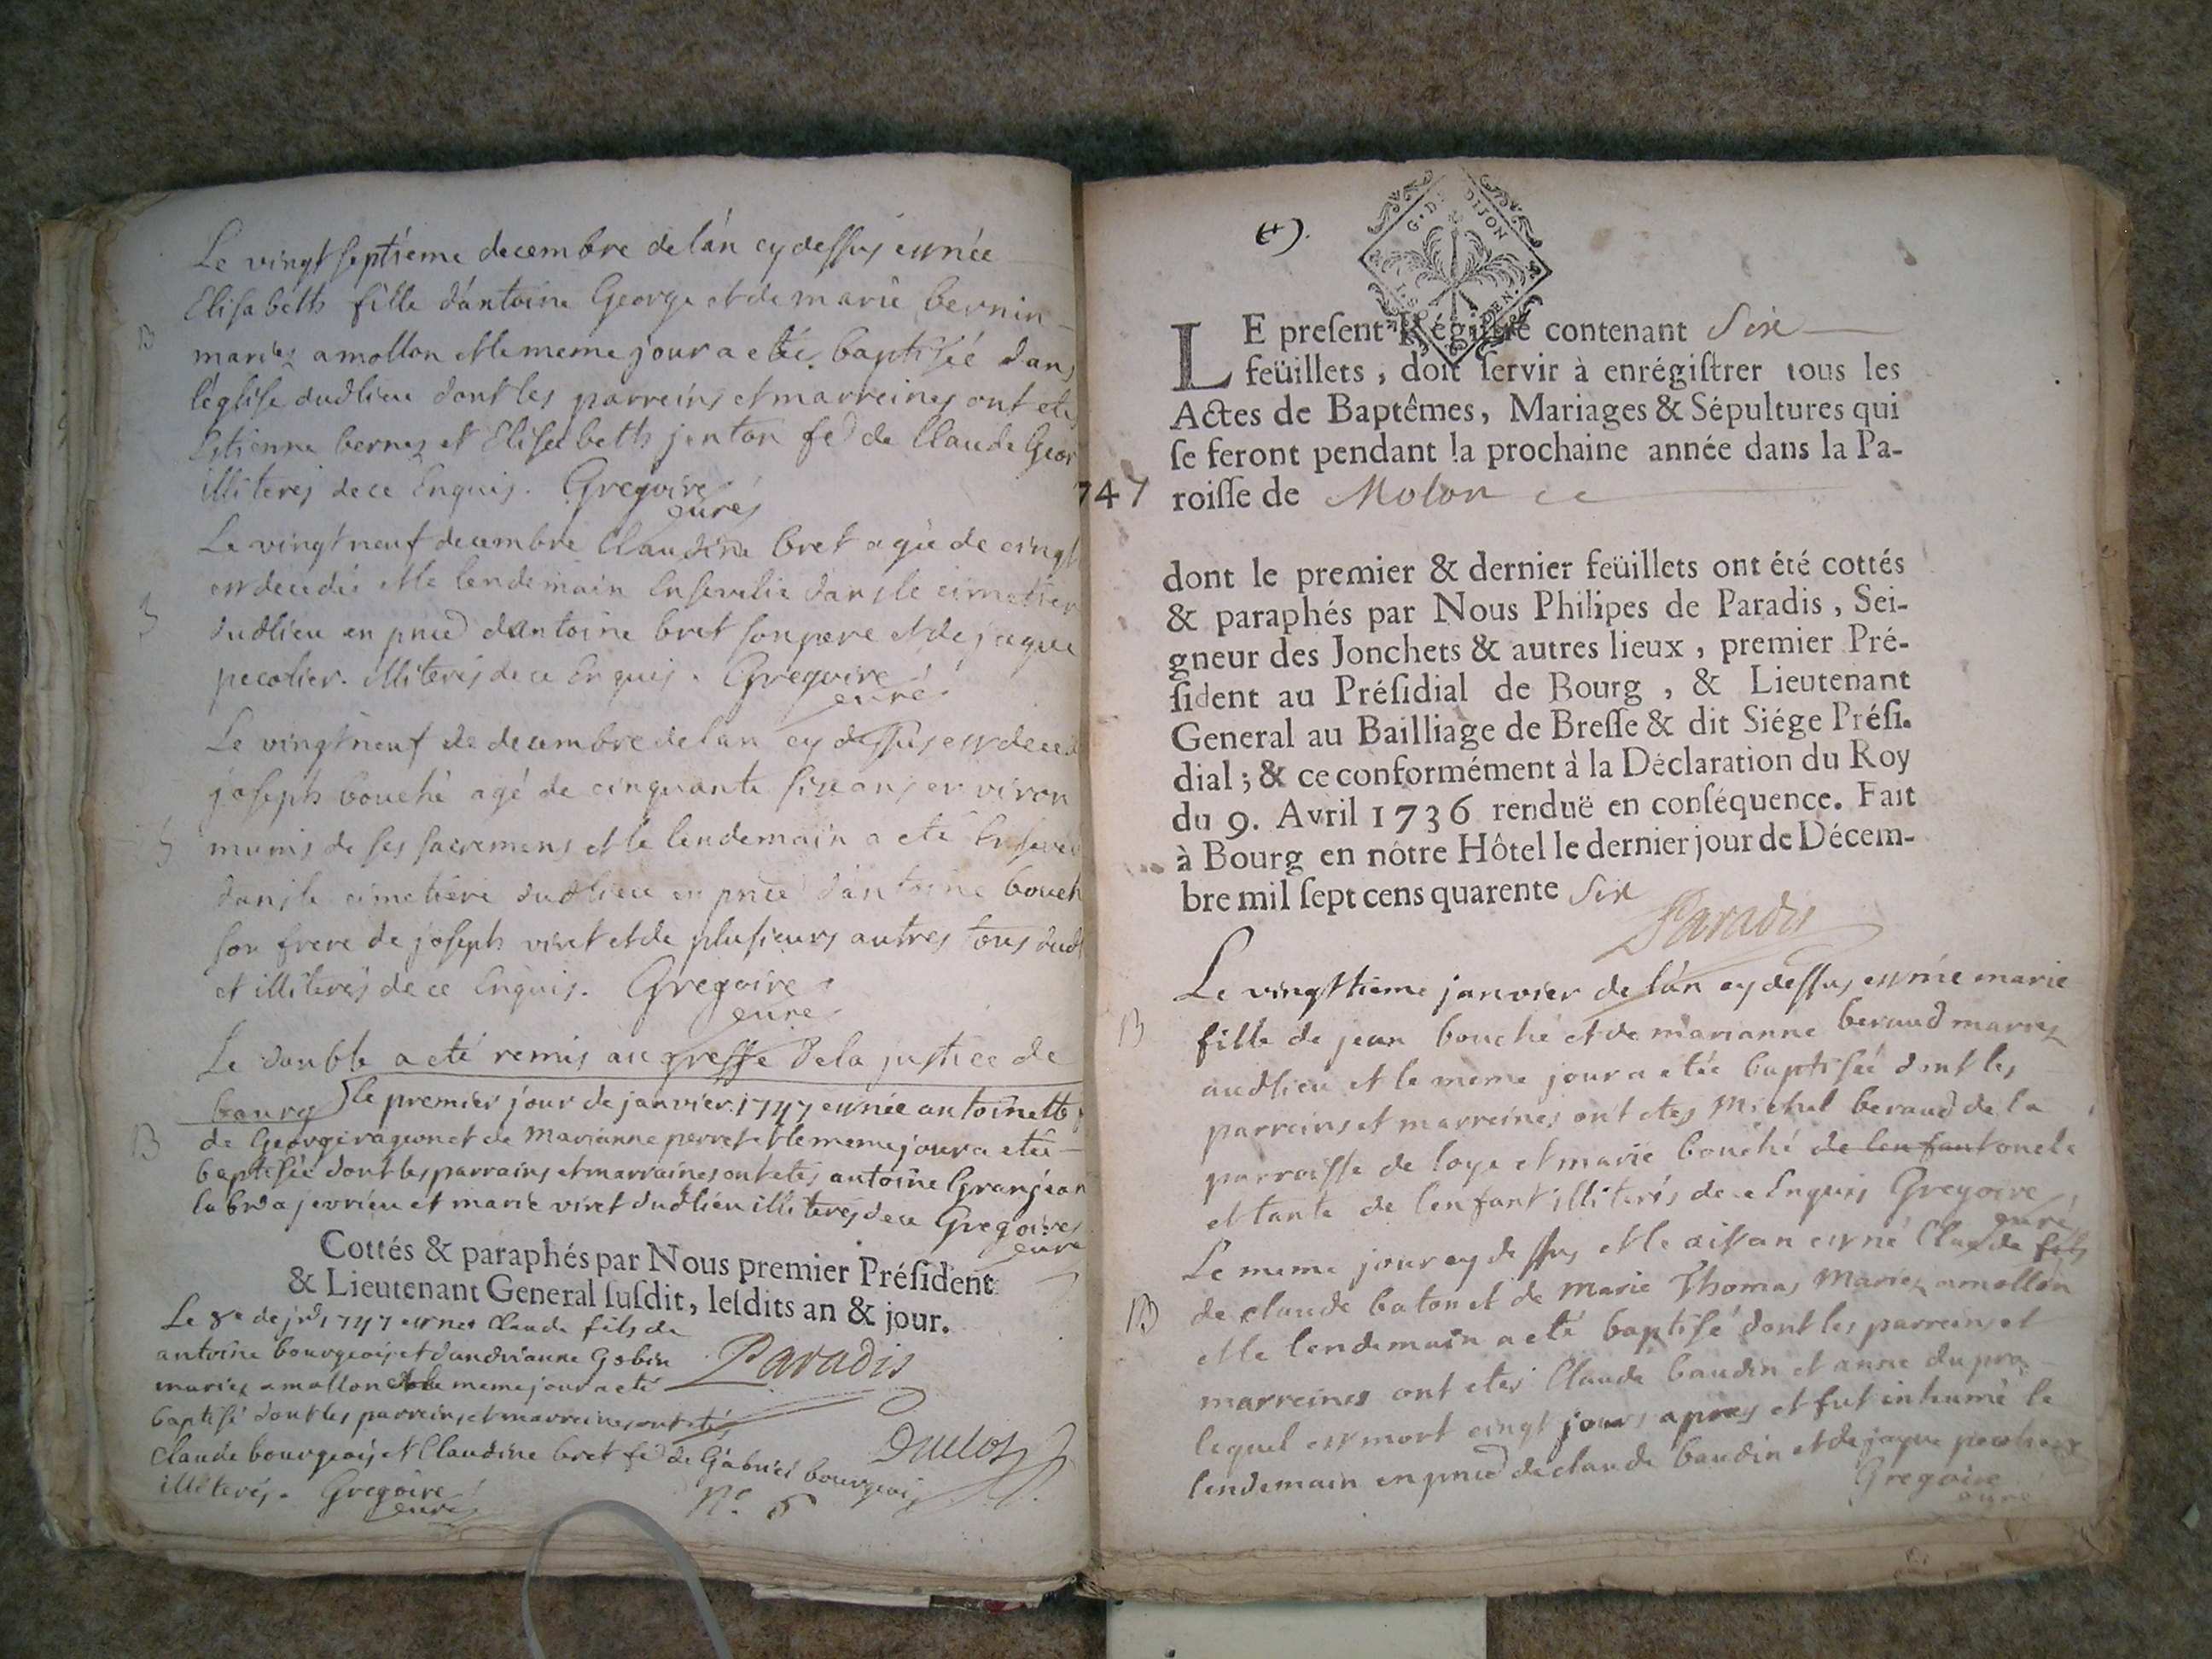 Le vingt septiéme decembre de lán cy dessus est née
Elisabeth fille d'antoine George et de marie bernin
mariez a mollon et le meme jour a eteé baptisée dans
léglise dudlieu dont les parreins et marreines ont etes
Estienne bernez et Elisabeth jenton fe de Claude Geor
illiterés de ce Enquis. Gregoire
curé
Le vingt neuf decembre Claudine bret agée de cinq
est decedée et le lendemain Ensevelie dans le cimetier
dudlieu en pnce d'antoine bret son pere et de jaque
pecolier. illiterés de ce Enquis. Gregoire
curé
Le vingt neuf de decembre de lan cy dessus est deced
joseph bouché agé de cinquante six ans environ
munis de ses sacremens et le lendemain a eté Enseveli
dans le cimetiere dudlieu en pnce d'antoine bouch
son frere de joseph viret et de plusieurs autres tous dud
et illiterés de ce Enquis. Gregoire
curé
Le double a eté remis au greffe de la justice de
bourg le premier jour de janvier 1747 est née antoinette
de George rageon et de Marianne perret et le meme jour a etée
baptisée dont les parrains et marraines ont etes antoine Granjean
la bnd a jevrieu et marie viret dudlieu illiterés de ce Gregoire
curé
Cottés & paraphés par Nous premier Président
& Lieutenant General susdit, lesdits an & jour.
Le 8e de jer 1747 est née Claude fils de
antoine bourgeois et dandrianne Gobin
mariez a mollon et le meme jour a eté
Paradis
baptisé dont les parreins et marreines ont etés
Claude bourgeois et Claudine bret fe de Gabriel bourgeois
Duclos
illiterés. Gregoire
curé
N.º 6
G. D DIJON
LE present Régistre contenant Six
feüillets, doit servir à enrégistrer tous les
Actes de Baptêmes, Mariages & Sépultures qui
se feront pendant la prochaine année dans la Pa-
747 roisse de Molon
dont le premier & dernier feüillets ont été cottés
& paraphés par Nous Philipes de Paradis, Sei-
gneur des Jonchets & autres lieux, premier Pré-
sident au Présidial de Bourg, & Lieutenant
General au Bailliage de Bresse & dit Siége Prési-
dial; & ce conformément à la Déclaration du Roy
du 9. Avril 1736 renduë en conséquence. Fait
à Bourg en nôtre Hôtel le dernier jour de Décem-
bre mil sept cens quarente Six
Paradis
Le vingttieme janvier de lán cy dessus est née marie
B fille de jean bouché et de marianne beraud marrez
audlieu et le meme jour a etée baptisée dont les
parreins et marreines ont etes Michel beraud de la
parroisse de loye et marie bouché de lenfant oncle
et tante de lenfant illiterés de ce Enquis Gregoire
curé
Le meme jour cy dessus et le dit an est né Claude fils
B de claude baton et de Marie Thomas Mariez a mollon
et le lendemain a eté baptisé dont les parreins et
marreines ont etes Claude baudin et anne du pra
lequel est mort cinqt jours apres et fut inhumé le
lendemain en pnce de claude baudin et de jaque pecolier
Gregoire
curé